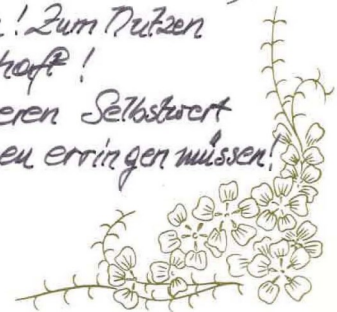 ! Zum Nutzen
haft!
eren Selbstwert
eu erringen müssen!